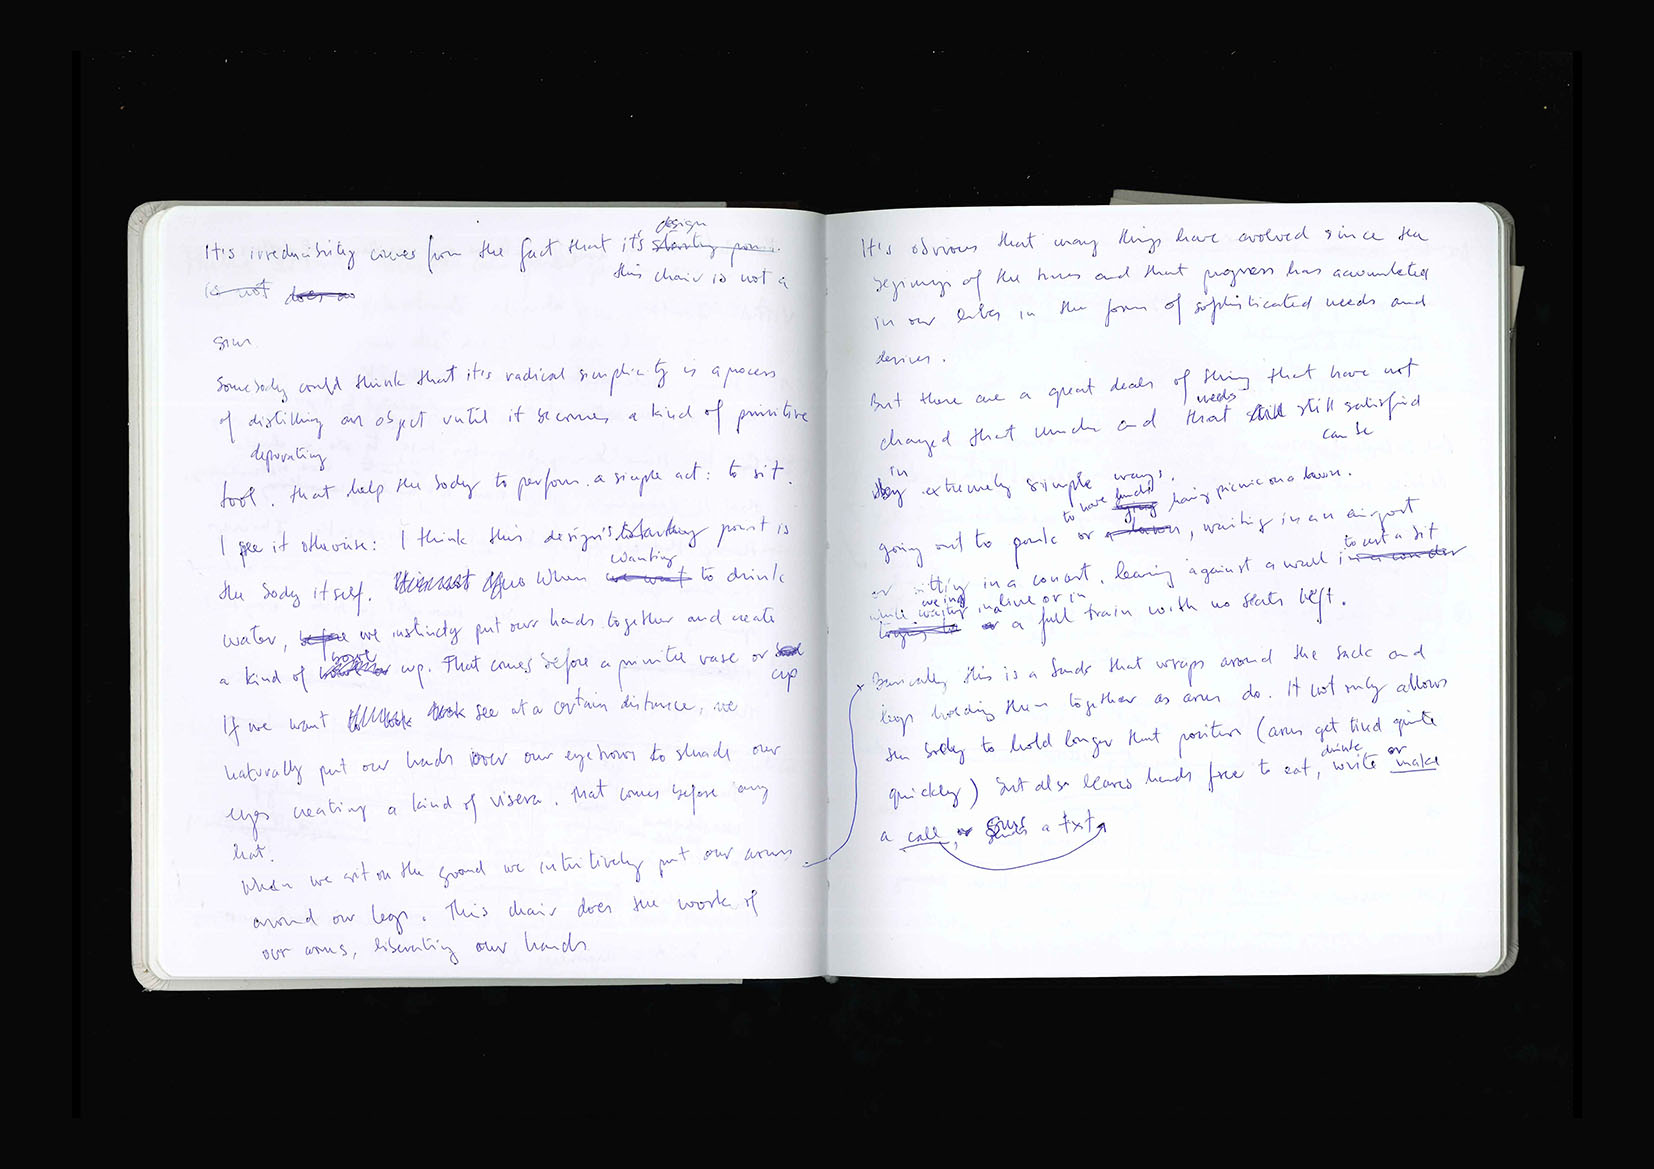 design
It's irreducibility comes from the fact that it's starting point
this chair is not a
is not does as
Somebody could think that it's radical simplicity is a process
of distilling an object until it becomes a kind of primitive
depurating
tool. that help the body to perform a simple act: to sit.
I see it otherwise: I think this design's starting point is
wanting
the body itself. When we want to drink
water, before we instinctly put our hands together and create
bowl
a kind of cup. That comes before a primitive vase or
cup
If we want look see at a certain distance, we
naturally put our hands over our eyebrows to shade our
eyes creating a kind of visera. That comes before any
hat.
When we sit on the ground we intuitively put our arms
around our legs. This chair does the work of
our arms, liberating our hands
It's obvious that many things have evolved since the
beginings of the times and that progress has acumulated
in our lives in the form of sophisticated needs and
desires.
But there are a great deals of thing that have not
needs
changed that much and that still still satisfied
can be
in
by extremely simple ways.
to have lunch having picnic on a lawn.
going out to park or a lawn, waiting in an airport
to rest a bit
or sitting in a concert, leaning against a wall in a corridor
while waiting in a line or in
or a full train with no seats left.
Basically this is a band that wraps around the back and
legs holding them together as arms do. It not only allows
the body to hold longer that position (arms get tired quite
drink or
quickly) but also leaves hands free to eat, write make
a call, or a txt